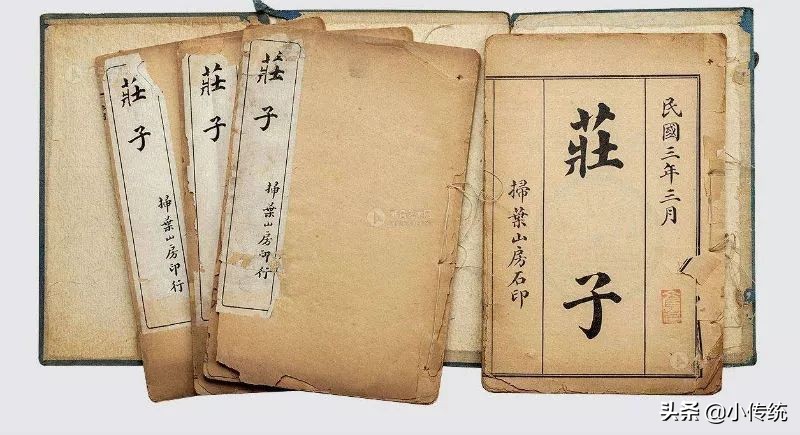 莊子
掃葉山房印行
莊子
莊子
掃葉山房印行
民國三年三月
莊子
掃葉山房石印
头条 @小传统